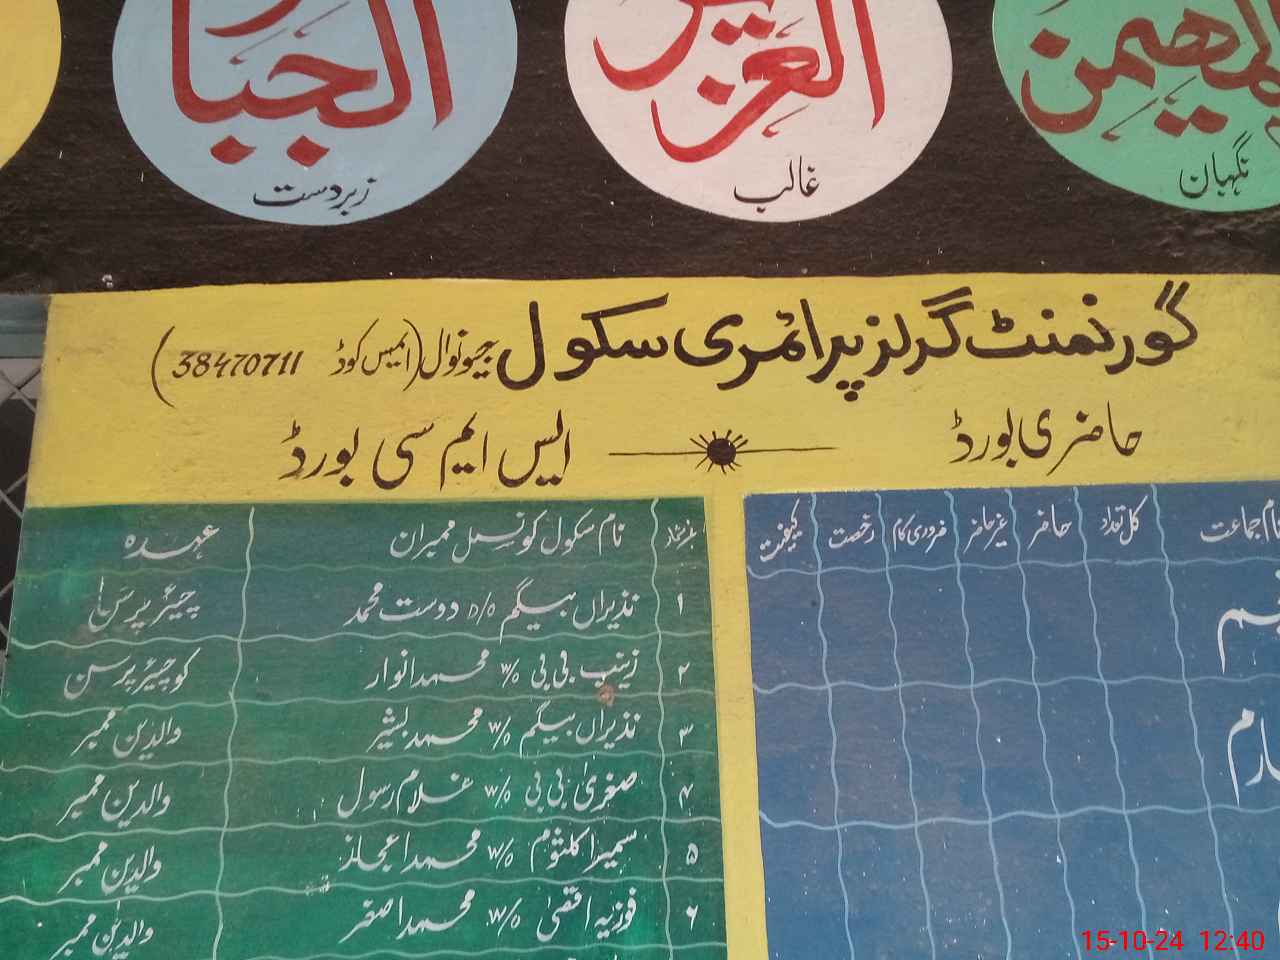 المهيمن
نگہبان
العزيز
غالب
الجبار
زبردست
گورنمنٹ گرلز پرائمری سکول جیونوال (ایمس کوڈ 38470711)
حاضری بورڈ
ایس ایم سی بورڈ
نام جماعت کل تعداد حاضر غیر حاضر ضروری کام رخصت کیفیت
نمبر شمار نام سکول کونسل ممبران عہدہ
۱ نذیراں بیگم D/o دوست محمد چیئرپرسن
۲ زینب بی بی W/o محمد انوار کو چیئرپرسن
۳ نذیراں بیگم W/o محمد بشیر والدین ممبر
۴ صغریٰ بی بی W/o غلام رسول والدین ممبر
۵ سمیرا کلثوم W/o محمد اعجاز والدین ممبر
۶ فوزیہ اقصیٰ W/o محمد اصغر والدین ممبر
15-10-24 12:40